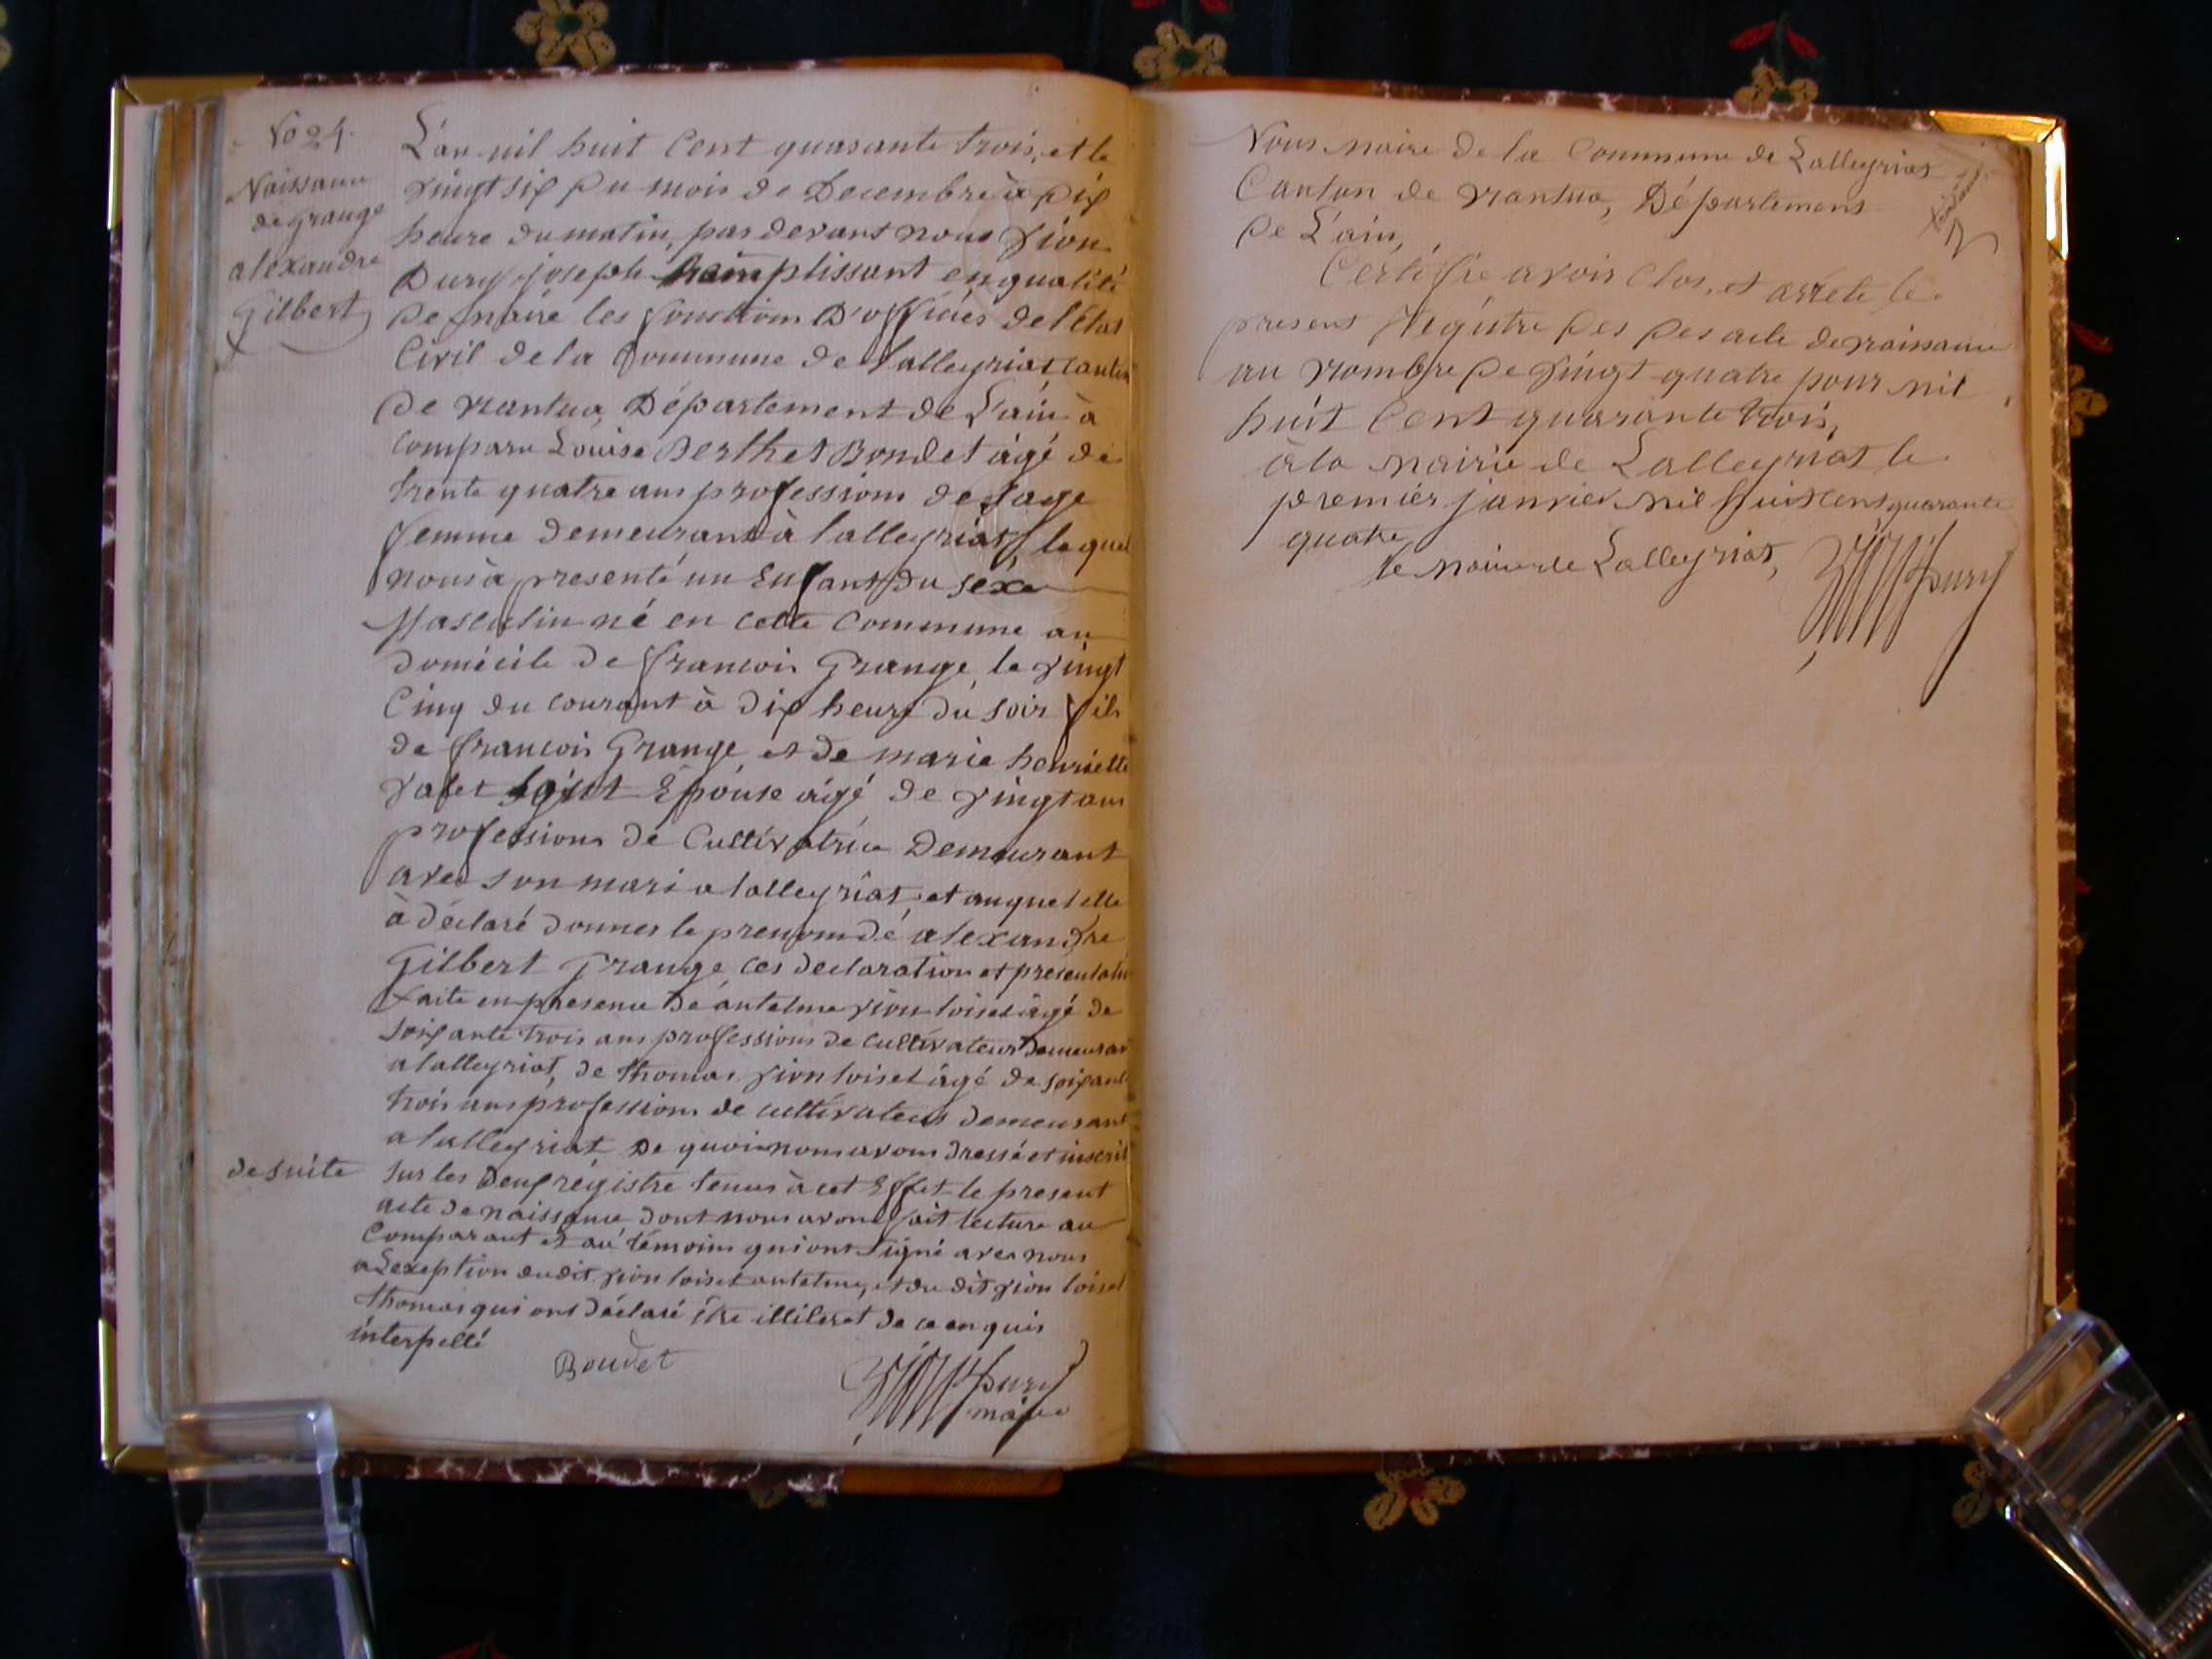 No 24.
Naissance
de grange
alexandre
Gilbert
L'an mil huit Cent quarante trois, et le
vingt six Du mois de Decembre à Dix
heure du matin, par devant nous Sion
Dury joseph remplissant en qualité
De maire les fonctions D'officiés de l'état
Civil de la Commune de lalleyriat canton
De Nantua, Département de L'ain à
comparu Louise Berthet Bondet âgé de
trente quatre ans professions de sage
femme demeurant à lalleyriat, laquel
nous à presenté un Enfant Du séxe
Masculin né en cette Commune au
domicile de francois Grange, le vingt
Cinq du courant à dix heure du soir fils
de francois Grange, et de marie henriette
Epouse âgé de vingt ans
professions de Cultivatrice Demeurant
avec son mari a lalleyriat, et auquel elle
à déclaré donner le prenom dé alexandre
Gilbert Grange, ces declaration et presentation
faite en presence de antelme sion loiset âgé de
soixante trois ans professions de cultivateur Demeurant
a lalleyriat, de thomas sion loiset âgé de soixante
trois ans professions de cultivateur demeurant
a lalleyriat, De quoi nous avons dressé et inscrit
de suite sur les Deux régistre tenus à cet Effet le present
acte de naissance dont nous avons fait lecture au
Comparant et au témoins qui ont signé avec nous
a Lexeption dudit sion loiset antelme, et du dit sion loiset
thomas qui ont déclaré être illiteret de ce enquis
interpellé
Boudet
Dury
maire
Nous maire de la Commune de Lalleyriat
Canton de Nantua, Département
De L'ain,
Certifie avoir Clos, et arrété le
present Régistre Des Des acte de naissance
au Nombre De vingt quatre pour mil
huit Cent quarante trois,
à la mairie de Lalleyriat le
premier janvier mil huit cent quarante
quatre
le maire de Lalleyriat,
Dury